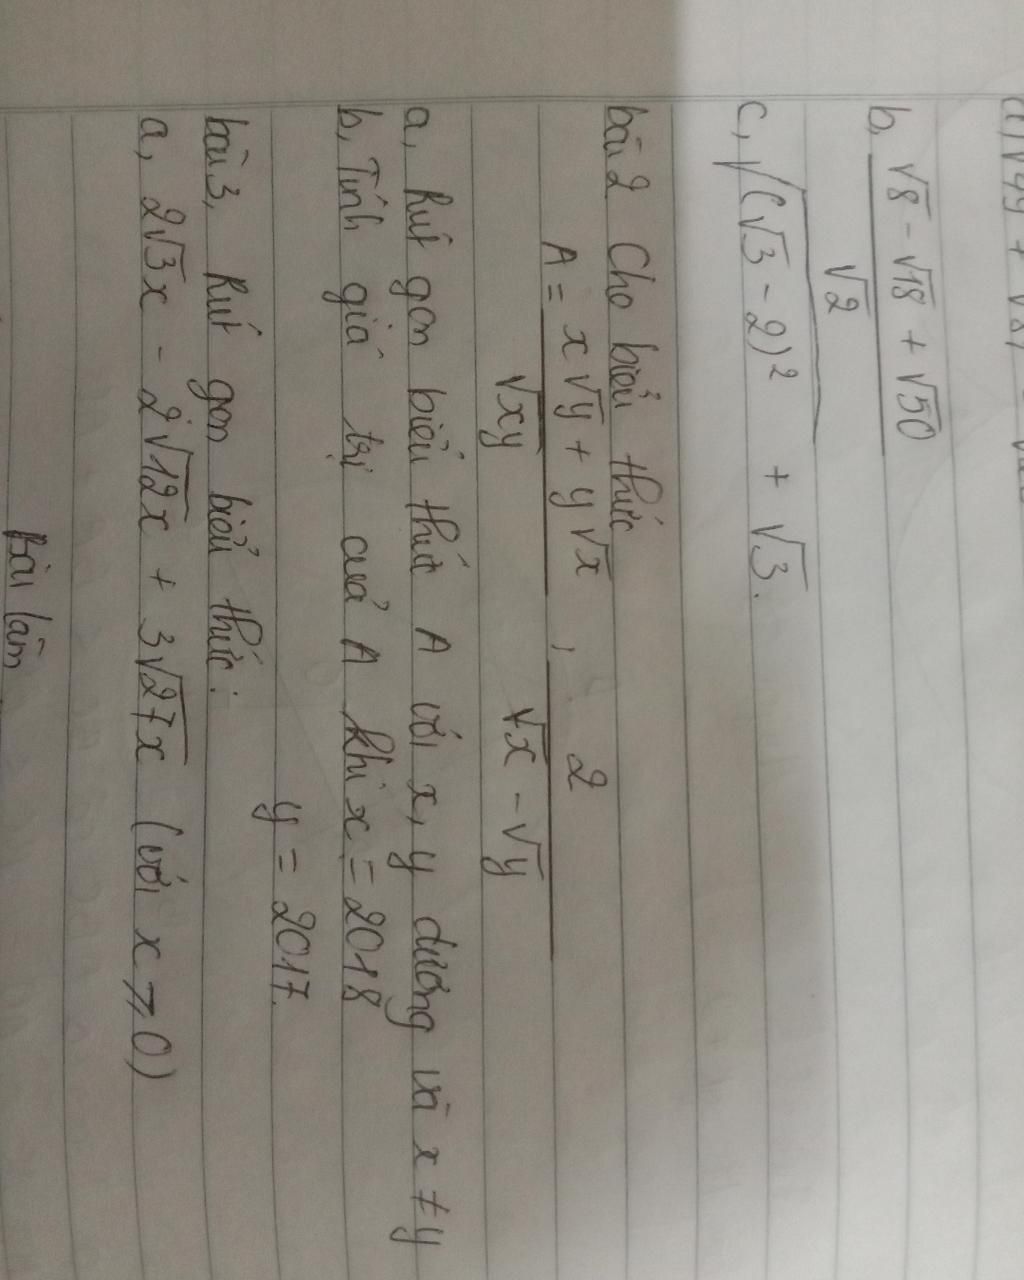 b, √8 - √18 + √50 / √2
c, √(√3 - 2)² + √3.
bài 2 Cho biểu thức
A = x√y + y√x / √xy , 2 / √x - √y
a, Rút gọn biểu thức A với x, y dương và x ≠ y
b, Tính giá trị cuả A khi x = 2018
y = 2017.
bài 3, Rút gọn biểu thức:
a, 2√3x - 2√12x + 3√27x (với x ⩾ 0)
Bài làm